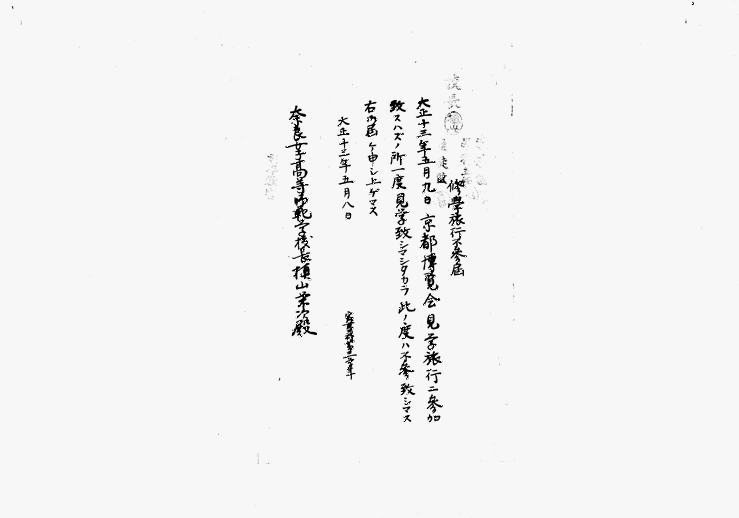 校長
修學旅行不参届
大正十三年五月九日京都博覧会見学旅行ニ参加
致スハズノ所一度見学致シマシタカラ此ノ度ハ不参致シマス
右御届ケ申シ上ゲマス
大正十三年五月八日
奈良女子高等師範学校長槇山栄次殿